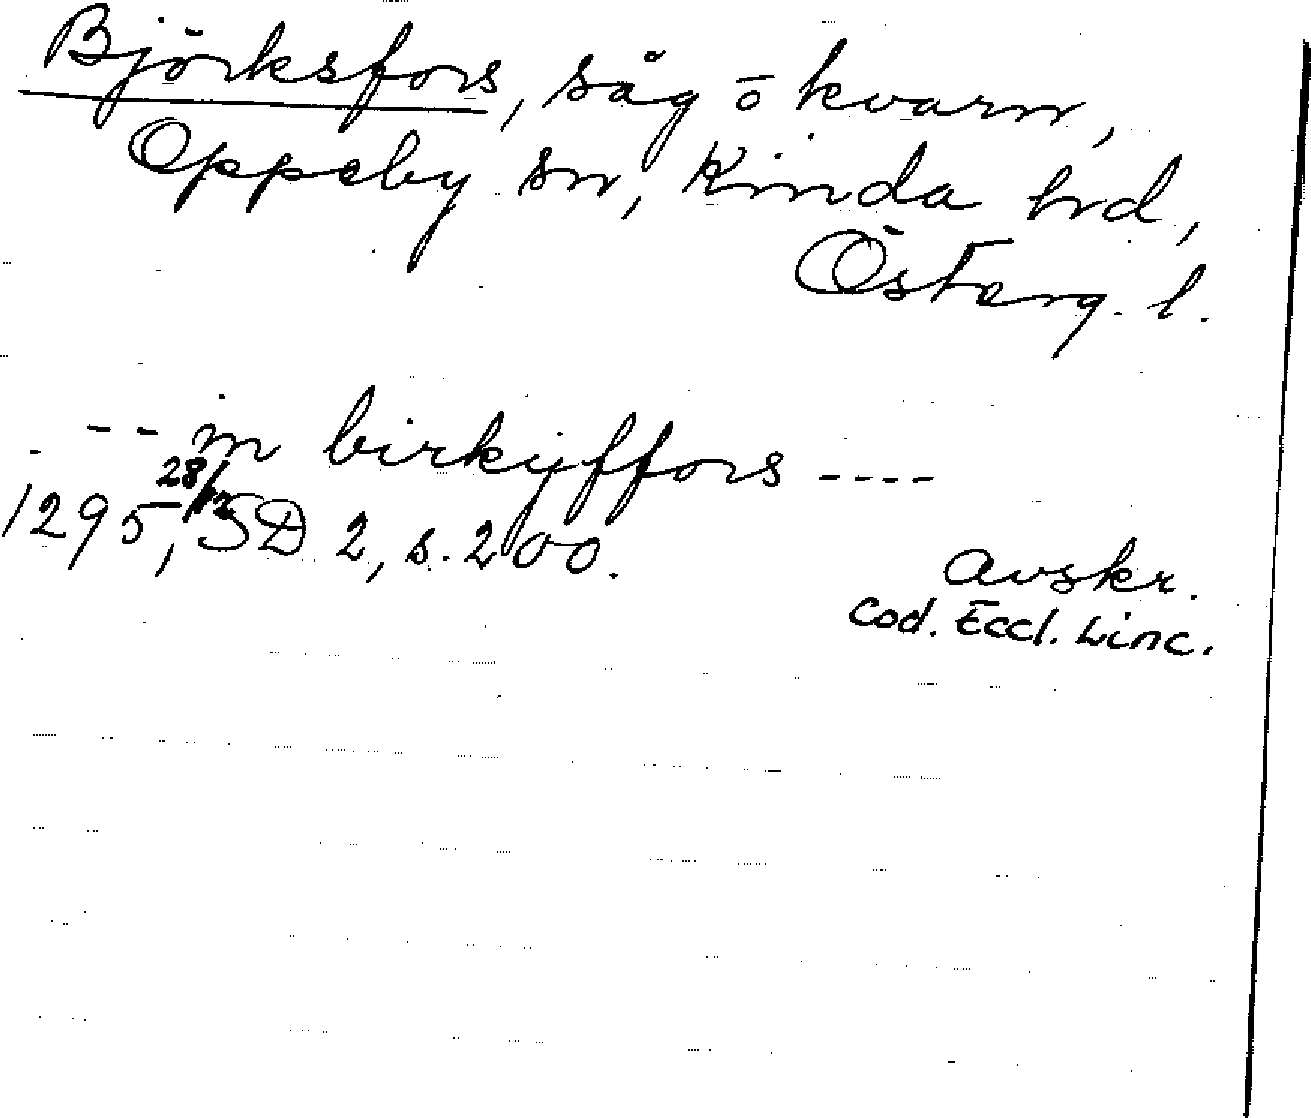 Björksfors, såg o kvarn,
Oppeby sn, Kinda hrd,
Österg. l.
-- in birkiffors ----
1295 28/12, SD 2, s. 200.
Avskr.
Cod. Eccl. Linc.